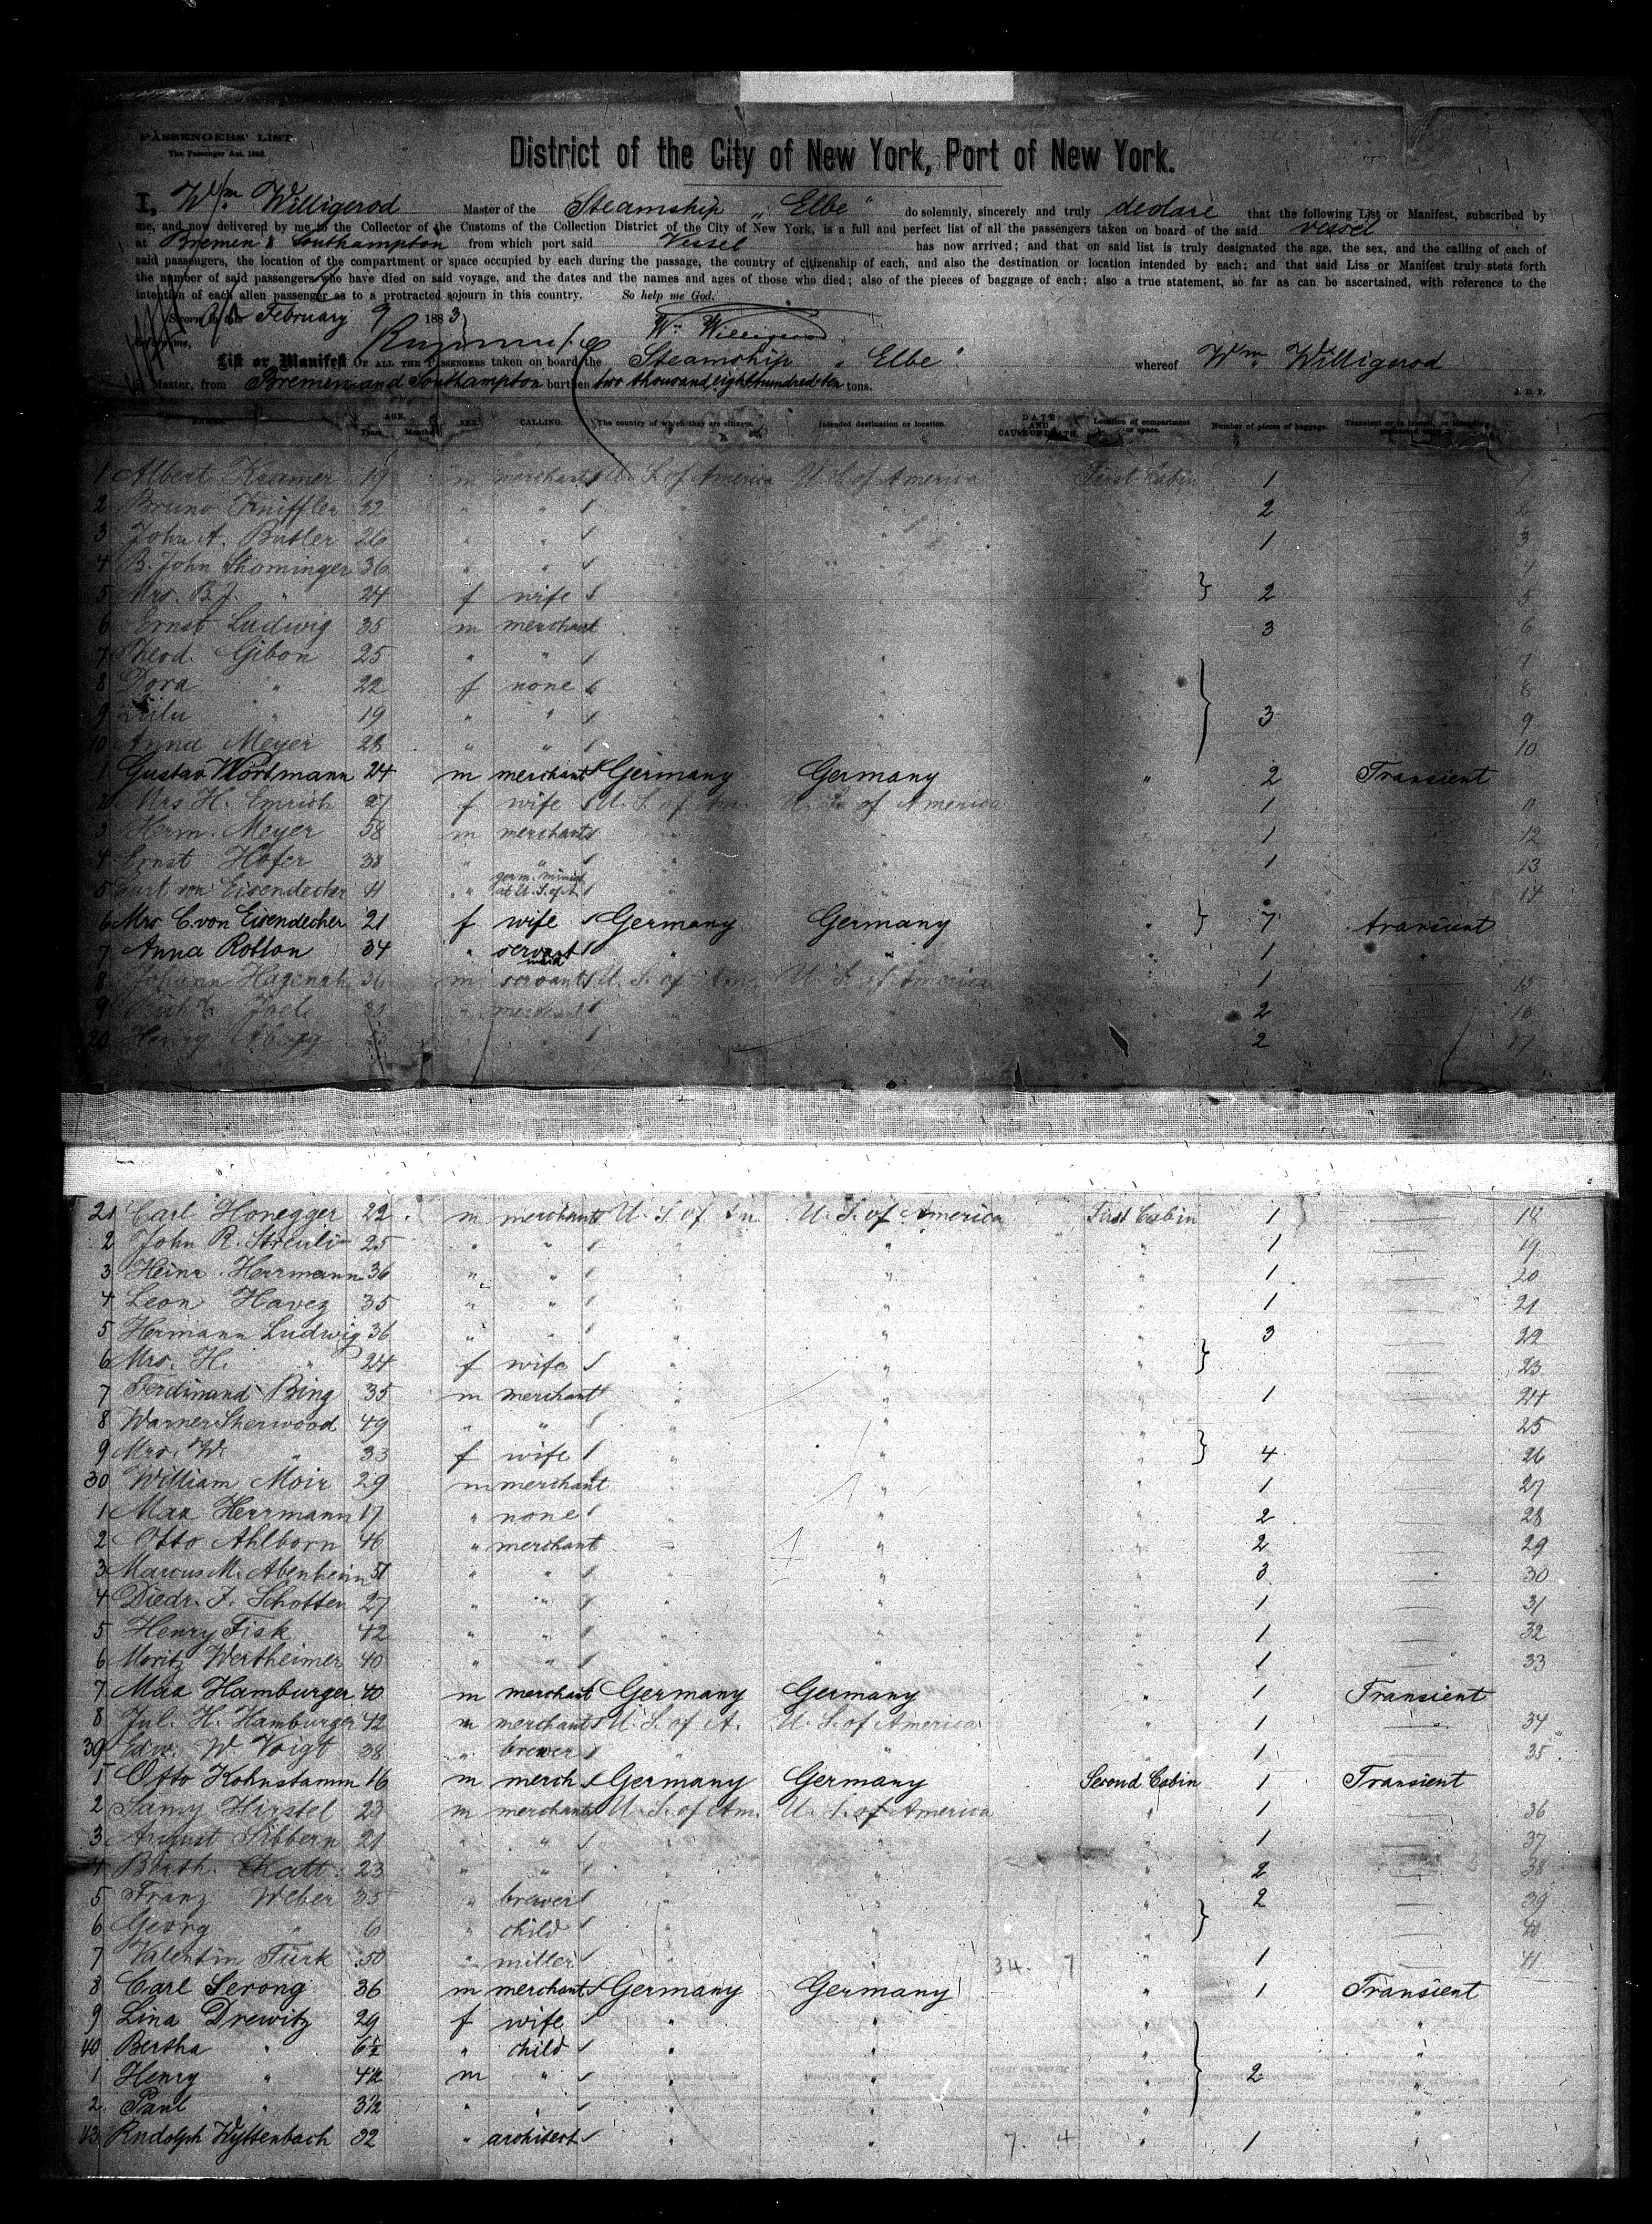 PASSENGERS' LIST
The Passenger Act. 1882.
District of the City of New York, Port of New York.
I, Wm Willigerod Master of the Steamship „ Elbe " do solemnly, sincerely and truly declare that the following List or Manifest, subscribed by
me, and now delivered by me to the Collector of the Customs of the Collection District of the City of New York, is a full and perfect list of all the passengers taken on board of the said vessel
at Bremen & Southampton from which port said Vessel has now arrived; and that on said list is truly designated the age, the sex, and the calling of each of
said passengers, the location of the compartment or space occupied by each during the passage, the country of citizenship of each, and also the destination or location intended by each; and that said Liss or Manifest truly stets forth
the number of said passengers who have died on said voyage, and the dates and the names and ages of those who died; also of the pieces of baggage of each; also a true statement, so far as can be ascertained, with reference to the
intention of each alien passenger as to a protracted sojourn in this country. So help me God.
Sworn to this February 9 1883
before me, Wm Willigerod
List or Manifest OF ALL THE PASSENGERS taken on board the Steamship „ Elbe " whereof Wm Willigerod
is Master, from Bremen and Southampton burthen two thousand eighthundred ten tons.
J. D. F.
NAMES. AGE. Years. Months. SEX. CALLING. The country of which they are citizens. Intended destination or location. DATE AND CAUSE OF DEATH. Location of compartment or space. Number of pieces of baggage. Transient or in transit, or intending
1 Albert Kramer 19 m merchant U. S. of America U. S. of America First Cabin 1 1
2 Bruno Kniffler 32 " " 2 2
3 John A. Butler 26 " " 1 3
4 B. John Shominger 36 " " 4
5 Mrs. B. J. " 24 f wife 2 5
6 Ernst Ludwig 35 m merchant 3 6
7 Theod. Gibon 25 " " 7
8 Dora " 22 f none 8
9 " 19 " " 3 9
10 Anna Meyer 28 " " 10
1 Gustav Wortmann 24 m merchant Germany Germany " 2 Transient
2 Mrs H. Emrich 27 f wife U. S. of Am. U. S. of America 1 11
3 Herm. Meyer 58 m merchant 1 12
4 Ernst Hofer 38 " " 1 13
5 Curt von Eisendecher 41 " germ. minist at U. S. of A. 14
6 Mrs C. von Eisendecher 21 f wife Germany Germany " 7 transient
7 Anna Rotton 34 " servant maid " " 1 "
8 Johann Hagenah 36 m servant U. S. of Am. U. S. of America 1 15
9 Joel merchant 2 16
20 Henry 2 17
21 Carl Honegger 22 m merchant U. S. of Am U. S. of America First Cabin 1 18
2 John R. Streuli 25 " " " " 1 19
3 Heinr. Herrmann 36 " " " " 1 20
4 Leon Havez 35 " " " " 1 21
5 Hermann Ludwig 36 " " " " 3 22
6 Mrs. H. " 24 f wife " " 23
7 Ferdinand Bing 35 m merchant " " 1 24
8 Warner Sherwood 49 " " " " 25
9 Mrs. W. " 33 f wife " " 4 26
30 William Moir 29 m merchant " " 1 27
1 Max Herrmann 17 " none " " 2 28
2 Otto Ahlborn 46 " merchant " " 2 29
3 Marcus M. Abenheim 51 " " " " 3 30
4 Diedr. F. Schotten 27 " " " " 1 31
5 Henry Fisk 42 " " " " 1 32
6 Moritz Wertheimer 40 " " " " 1 33
7 Max Hamburger 40 m merchant Germany Germany " 1 Transient
8 Jul. H. Hamburger 42 m merchant U. S. of A. U. S. of America " 1 34
39 Edw. W. Voigt 38 " brewer " " " 1 35
1 Otto Kohnstamm 16 m merch Germany Germany Second Cabin 1 Transient
2 Samy Hirstel 23 m merchant U. S. of Am. U. S. of America " 1 36
3 August Sibbern 21 " " " " " 1 37
4 Berth. Katt 23 " " " " " 2 38
5 Franz Weber 35 " brewer " " " 2 39
6 Georg " 6 " child " " " 40
7 Valentin Türk 50 " miller " " 34. 7 " 1 41
8 Carl Serong 36 m merchant Germany Germany " 1 Transient
9 Lina Drewitz 29 f wife " " " "
40 Bertha " 6½ " child " " " "
1 Henry " 4½ m " " " " 2 "
2 Paul " 3½ " " " " " "
43 Rudolph Wyttenbach 32 " architect " " 7. 4 " 1 "